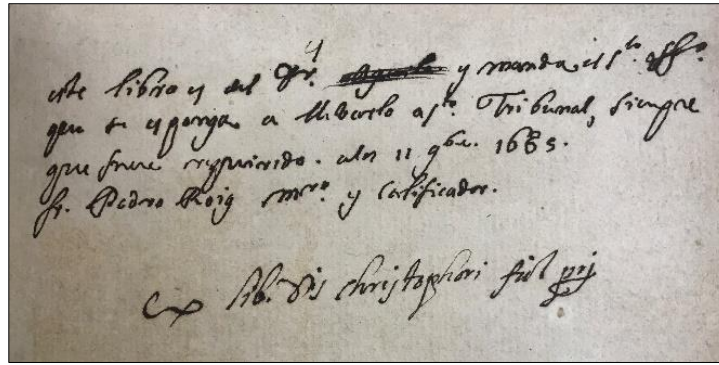 este libro es del Dr. y manda el s.to offo.
que se esponga a llebarlo a s.to Tribunal, siempre
que fuere requirido. a los 11 9bre. 1685.
fr. Pedro Roig mro. y Calificador.
Ex lib. Dris christophori fiol prj